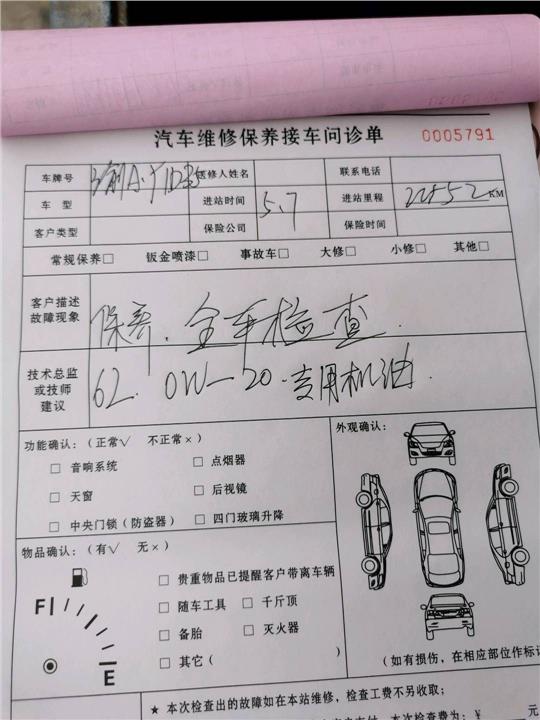 汽车维修保养接车问诊单 0005791
车牌号 送修人姓名 联系电话
车型 进站时间 5.7 进站里程 22852 KM
客户类型 保险公司 保险时间
常规保养□ 钣金喷漆□ 事故车□ 大修□ 小修□ 其他□
客户描述故障现象 保养.全车检查.
技术总监或技师建议 6L 0W-20.专用机油
功能确认：（正常√ 不正常×） 外观确认：
□ 音响系统 □ 点烟器
□ 天窗 □ 后视镜
□ 中央门锁（防盗器） □ 四门玻璃升降
物品确认：（有√ 无×）
□ 贵重物品已提醒客户带离车辆
F □ 随车工具 □ 千斤顶
□ 备胎 □ 灭火器
E □ 其它（ ） （如有损伤，在相应部位作标识
★ 本次检查出的故障如在本站维修，检查工费不另收取；
本次检查费为：¥ 元